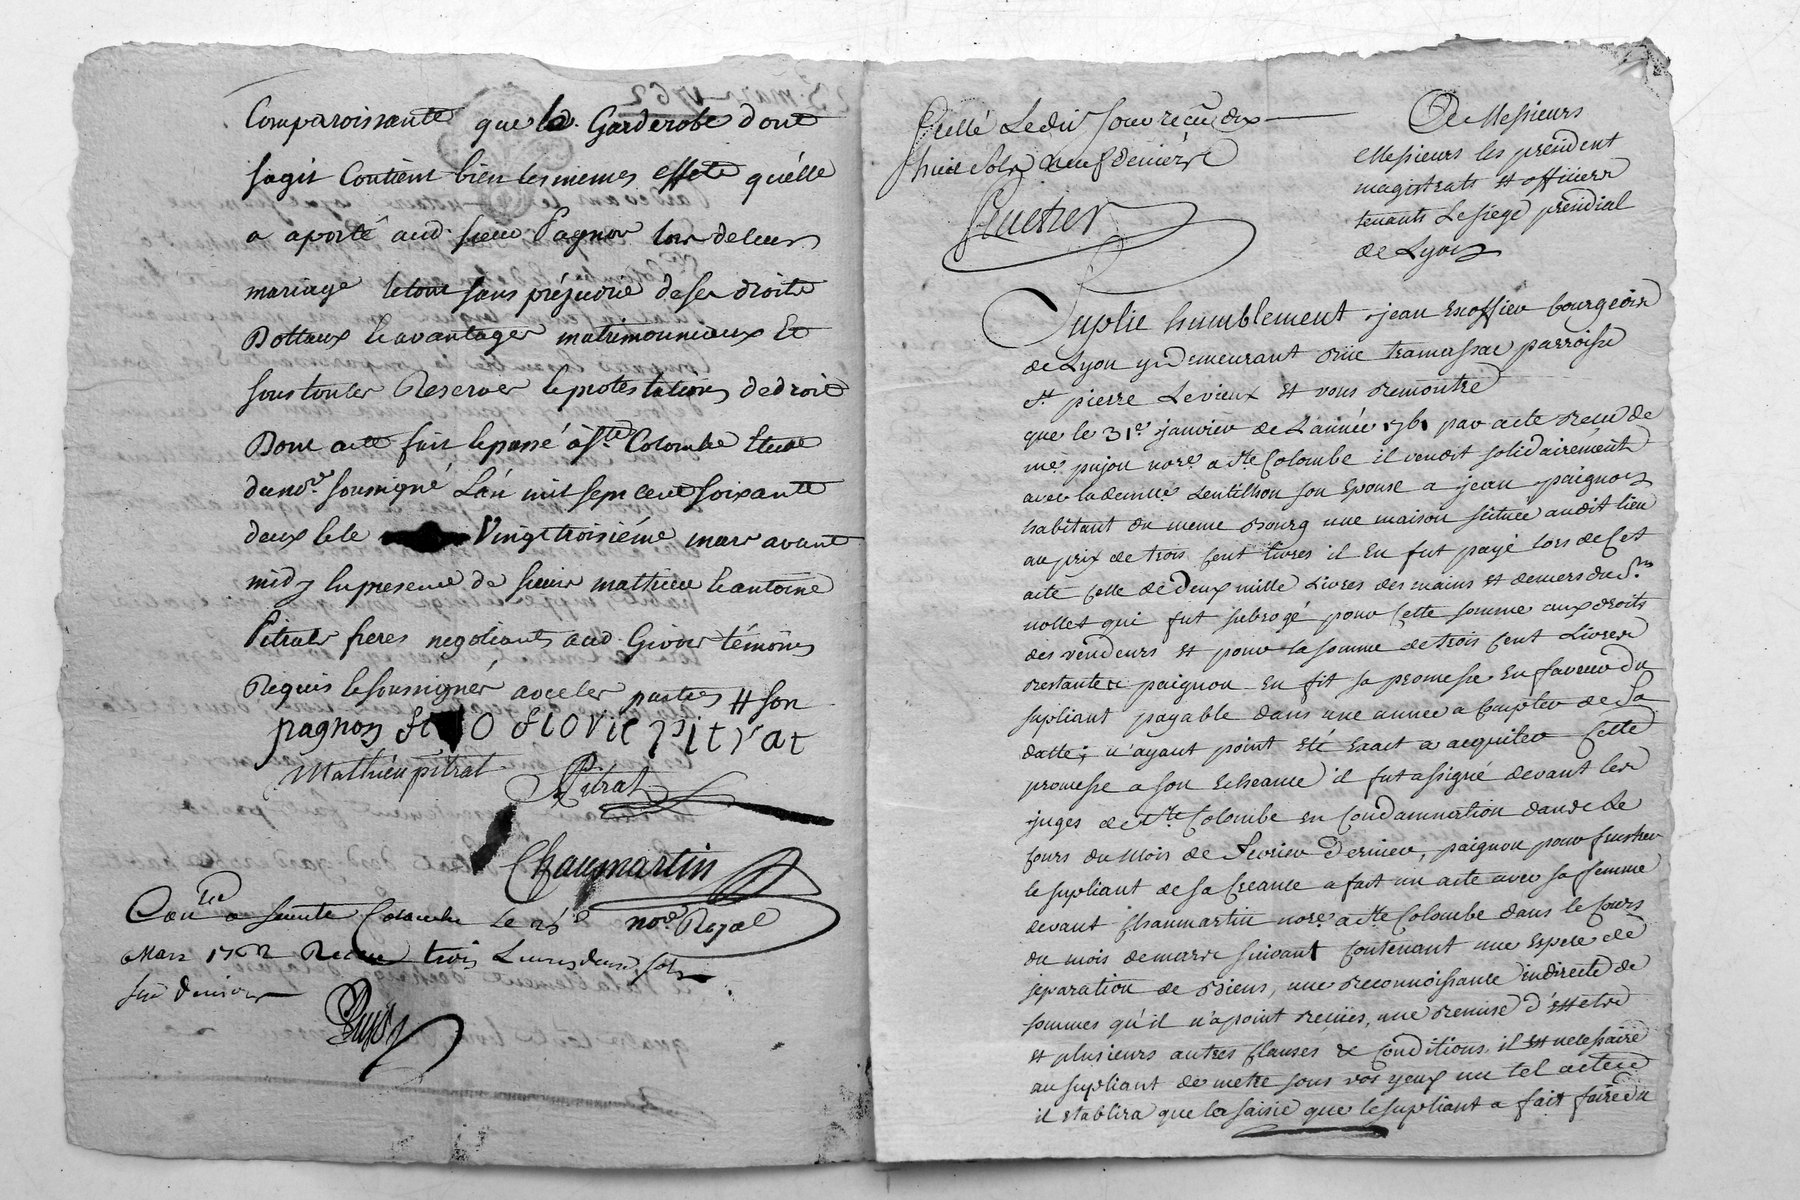 Comparoissante que la Garderobe dont
sagit Contient bien les memes effets quélle
a aporté aud. sieur Pagnon lors de leur
mariage le tout sans préjudice de ses droits
Dottaux & avantages matrimonniaux Et
sous toutes Reserves & protestations de droit
Dont acte fait & passé à Ste Colombe Etude
du nore. soussigné Lán mil sept cent soixante
deux & le Vingt troisiéme mars avant
midy En presence de sieurs mathieu & antoine
Pitrat freres negotiants aud. Givors témoins
Requis & soussignés avec les parties # son
pagnon flovie pitrat
Mathieu pitrat
Pitrat
Chaumartin
nore. Royal
Conlé a sainte Colombe le 25e
Mars 1762 Recu trois Livres douze sols
six deniers
Pujon
Scellé Ledit Jour reçu dix
huit sols neuf deniers
De Messieurs
Messieurs les president
magistrats et officiers
tenants Le siege presidial
de Lyon
Suplie humblement jean Escoffier bourgeois
de Lyon y demeurant rüe tramassac parroisse
st. pierre Le vieux et vous remontre
que le 31e. janvier de L'année 1761 par acte recu de
me. pujon nore. a Ste Colombe il vendit solidairement
avec la demlle. Lentillon son Epouse a jean paignon
habitant du meme Bourg une maison scituée audit lieu
au prix de trois Cent livres il En fut payé lors de Cet
acte Celle de Deux mille Livres des mains et deniers du Sr.
nollet qui fut subrogé pour Cette somme aux droits
des vendeurs et pour la somme de trois Cent Livres
restante paignon En fit sa promesse En faveur du
supliant payable dans une année a Compter de Sa
datte; n'ayant point Eté Exact a acquiter Cette
promesse a son Echeance il fut assigné devant les
juges de Ste Colombe en Condamnation dans Le
Cours du Mois de Fevrier Dernier, paignon pour frustrer
le supliant de sa Creance a fait un acte avec sa femme
devant Chaumartin nore. a Ste Colombe dans le Cours
du mois de mars suivant Contenant une Espece de
separation de Biens, une reconnoissance indirecte de
sommes qu'il n'a point reçües, une remise d'Effets
et plusieurs autres Clauses & Conditions, il Est necessaire
au supliant de metre sous vos yeux un tel acte
il Etablira que la saisie que le supliant a fait faire du